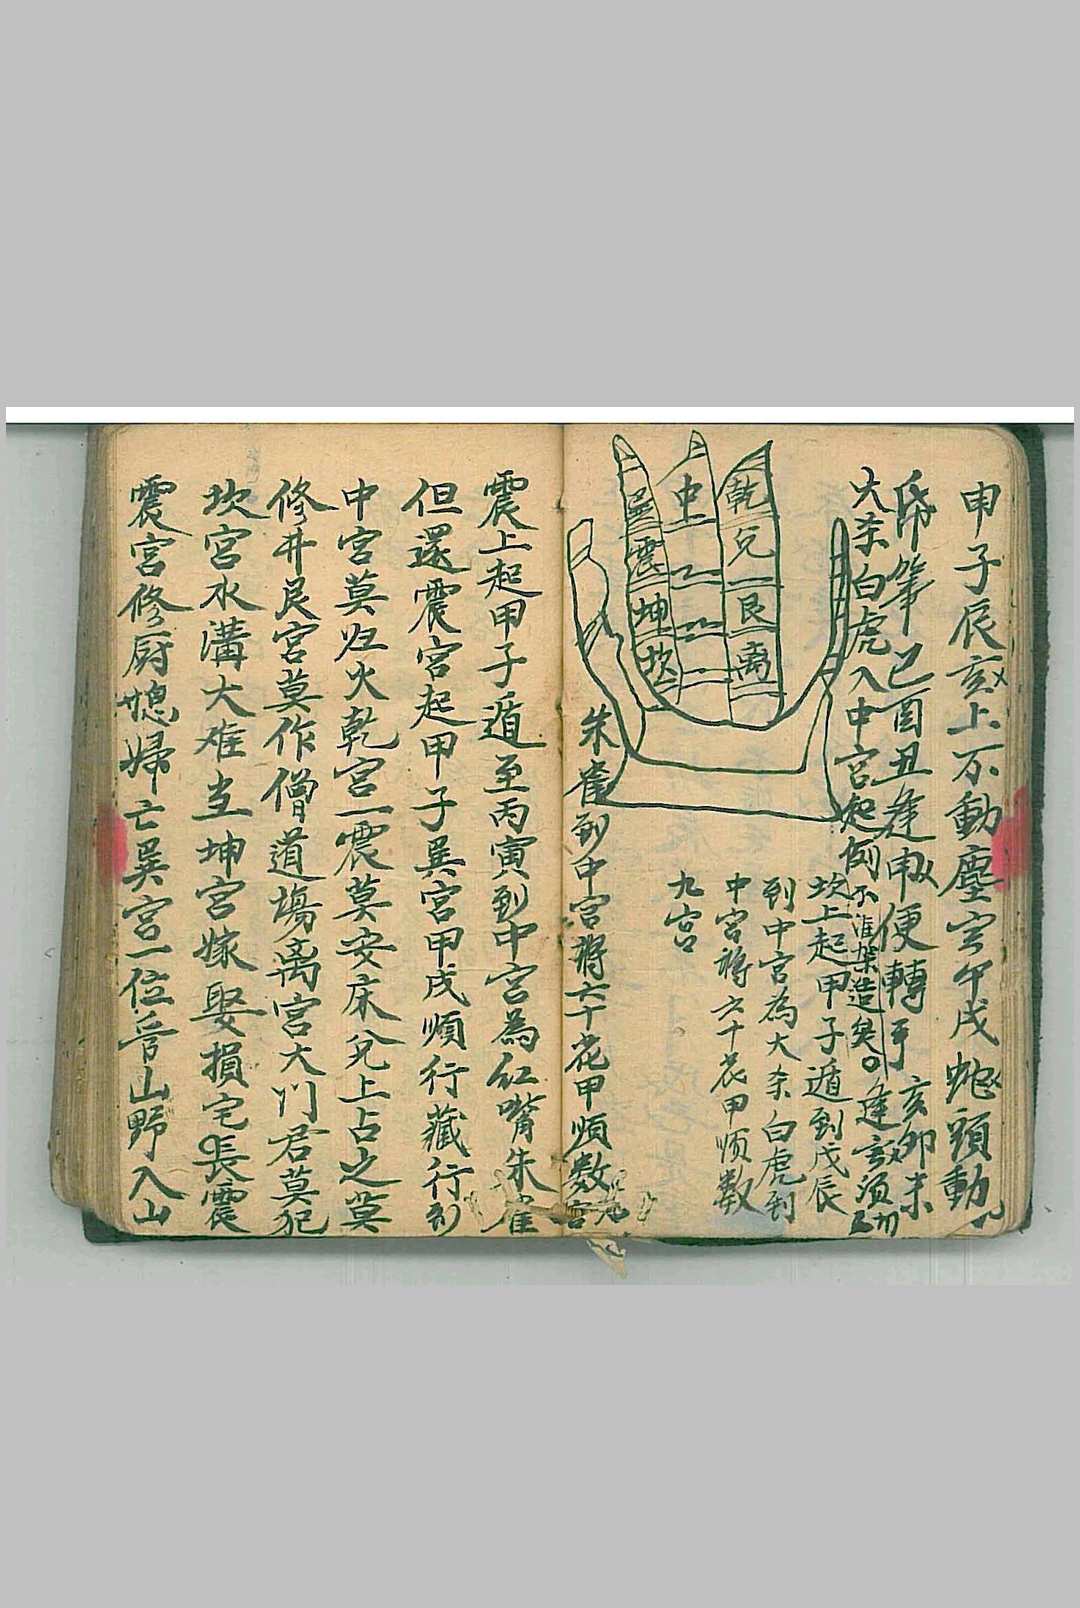 申子辰亥上不動塵寅午戌蛇頭動
筆巳酉丑逢申便轉手亥卯未
逢亥須
大杀白虎入中宮起例不准架造癸
坎上起甲子遁到戊辰
到中宮為大杀白虎到
中宮將六十花甲順数
九宮
巽震坤坎
中
乾兌艮离
朱雀到中宮將六十花甲順数九宮
震上起甲子遁至丙寅到中宮為紅嘴朱雀
但還震宮起甲子巽宮甲戌順行藏行到
中宮莫归火乾宮一震莫安床兌上占之莫
修井艮宮莫作僧道場离宮大门君莫犯
坎宮水溝大难当坤宮嫁娶損宅長震
震宮修厨媳婦亡巽宮一位吞山野入山